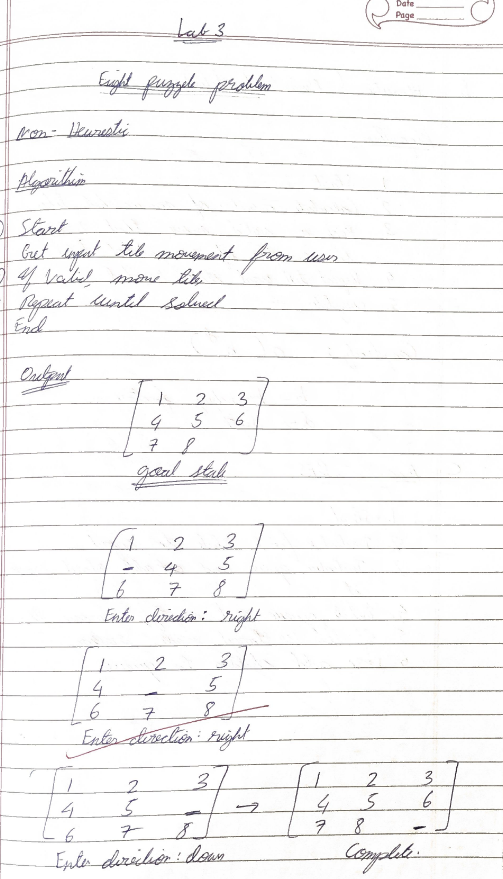 Date
Page
Lab 3
Eight puzzle problem
Non-Heurestic
Algorithim
Start
Get input tile movement from user
If valid, move tile
Repeat until solved
End
Output
1 2 3
4 5 6
7 8
goal state
1 2 3
- 4 5
6 7 8
Enter direction: right
1 2 3
4 - 5
6 7 8
Enter direction: right
1 2 3 1 2 3
4 5 - → 4 5 6
6 7 8 7 8 -
Enter direction: down Complete.